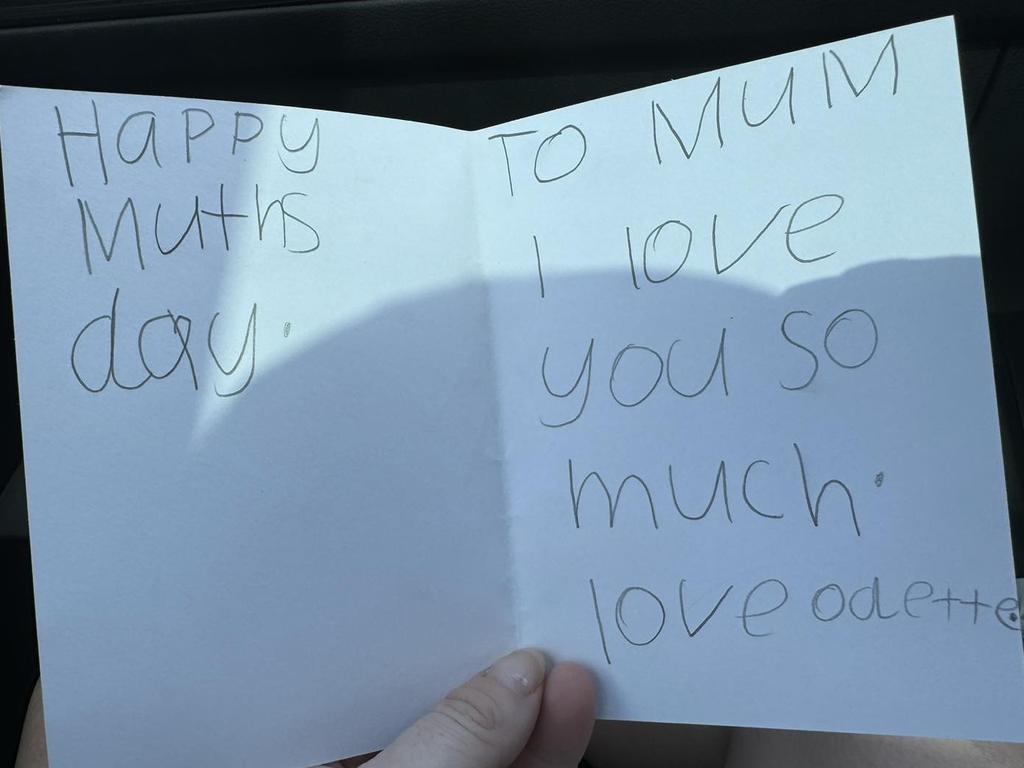 Happy
Muths
day.
TO MUM
I love
you so
much.
love odette.